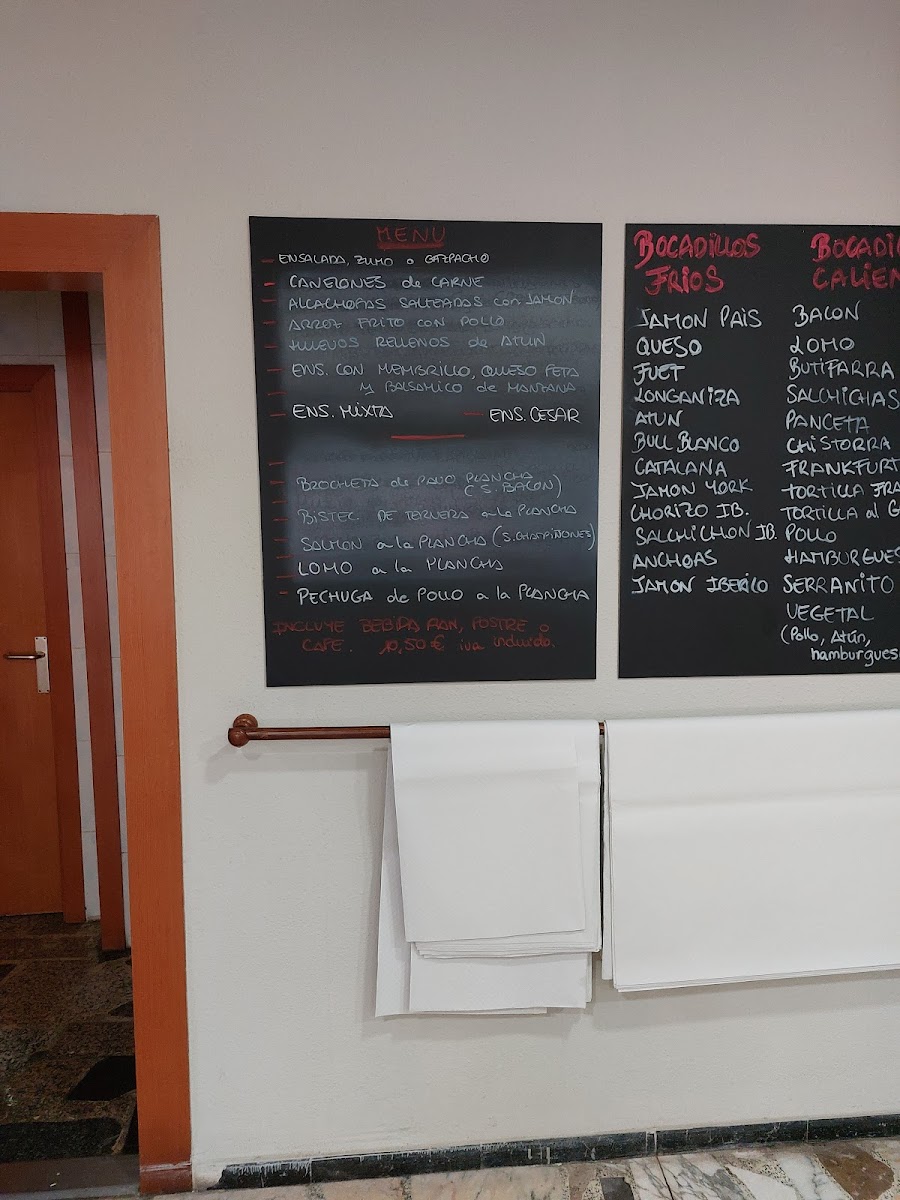 MENU
ENSALADA, ZUMO o GAZPACHO
CANELONES de CARNE
ALCACHOFAS SALTEADAS con JAMON
ARROZ FRITO CON POLLO
HUEVOS RELLENOS de ATUN
ENS. CON MEMBRILLO, QUESO FETA
Y BALSAMICO de MANZANA
ENS. MIXTA
ENS. CESAR
BROCHETA de PAVO PLANCHA
(S. BACON)
BISTEC DE TERNERA a la PLANCHA
SALMON a la PLANCHA (S. CHAMPIÑONES)
LOMO a la PLANCHA
PECHUGA de POLLO a la PLANCHA
INCLUYE BEBIDA PAN, POSTRE o
CAFE. 10,50 € iva incluido.
BOCADILLOS
FRIOS
JAMON PAIS
QUESO
FUET
LONGANIZA
ATUN
BULL BLANCO
CATALANA
JAMON YORK
CHORIZO IB.
SALCHICHON IB.
ANCHOAS
JAMON IBERICO
BOCADI
CALIEN
BACON
LOMO
BUTIFARRA
SALCHICHAS
PANCETA
CHISTORRA
FRANKFURT
TORTILLA FRA
TORTILLA al G
POLLO
HAMBURGUES
SERRANITO
VEGETAL
(Pollo, Atún,
hamburgues